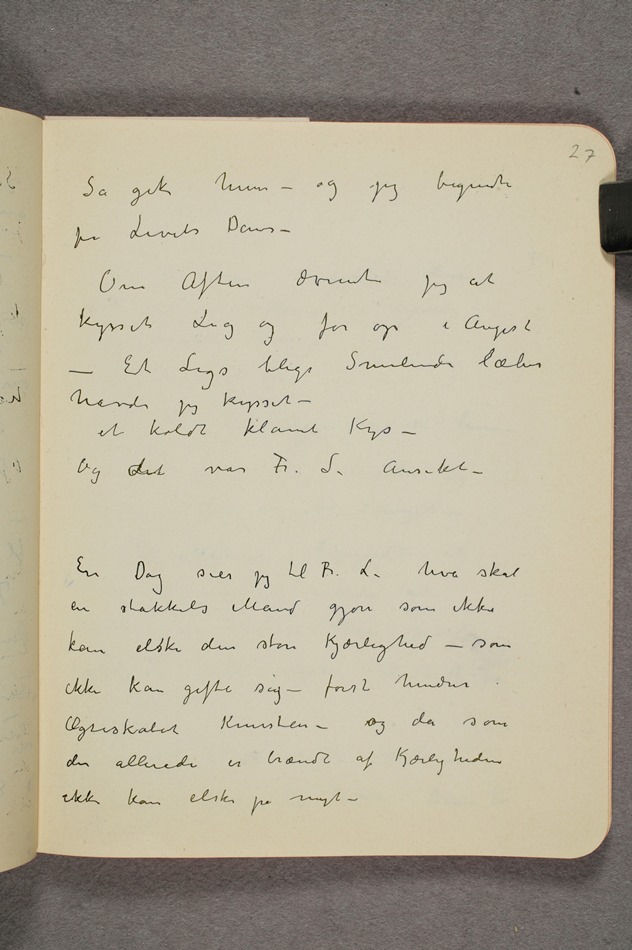 27
Så gik hun – og jeg begynte
på Livets Dans –
Om Aften drømte jeg at
kysset Lig og for op i Angest
– Et Ligs blege Smilende læber
havde jeg kysset –
et koldt klamt Kys –
Og det var Fr. L. Ansikt –
En Dag sier jeg til Fr. L. hva skal
en stakkels Mand gjøre som ikke
kan elske den store Kjærlighed – som
ikke kan gifte sig – først hindrer
Ægteskabet Kunsten – og da som
den allerede er brændt af Kjærligheden
ikke kan elske på nyt –